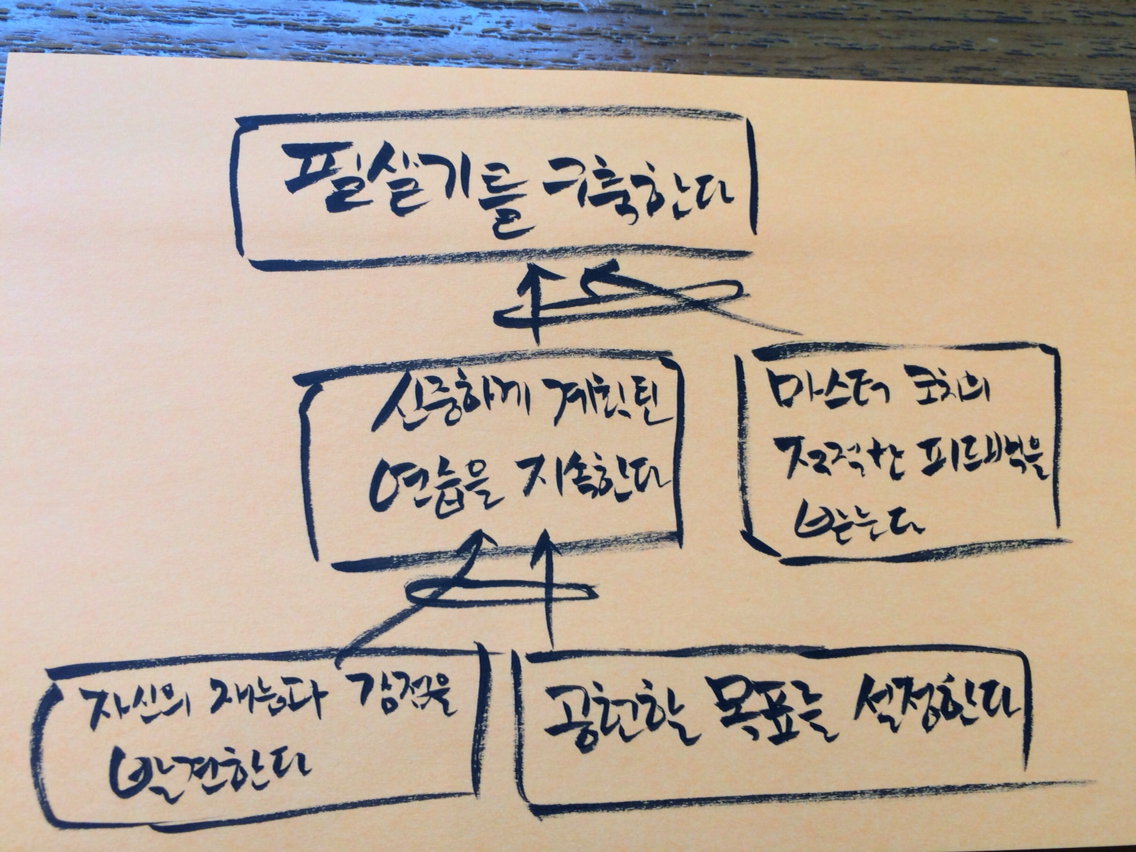 필살기를 구축한다
신중하게 계획된
연습을 지속한다
마스터 코치의
적한 피드백을
받는다
자신의 재능과 강점을
발견한다
공헌할 목표를 설정한다